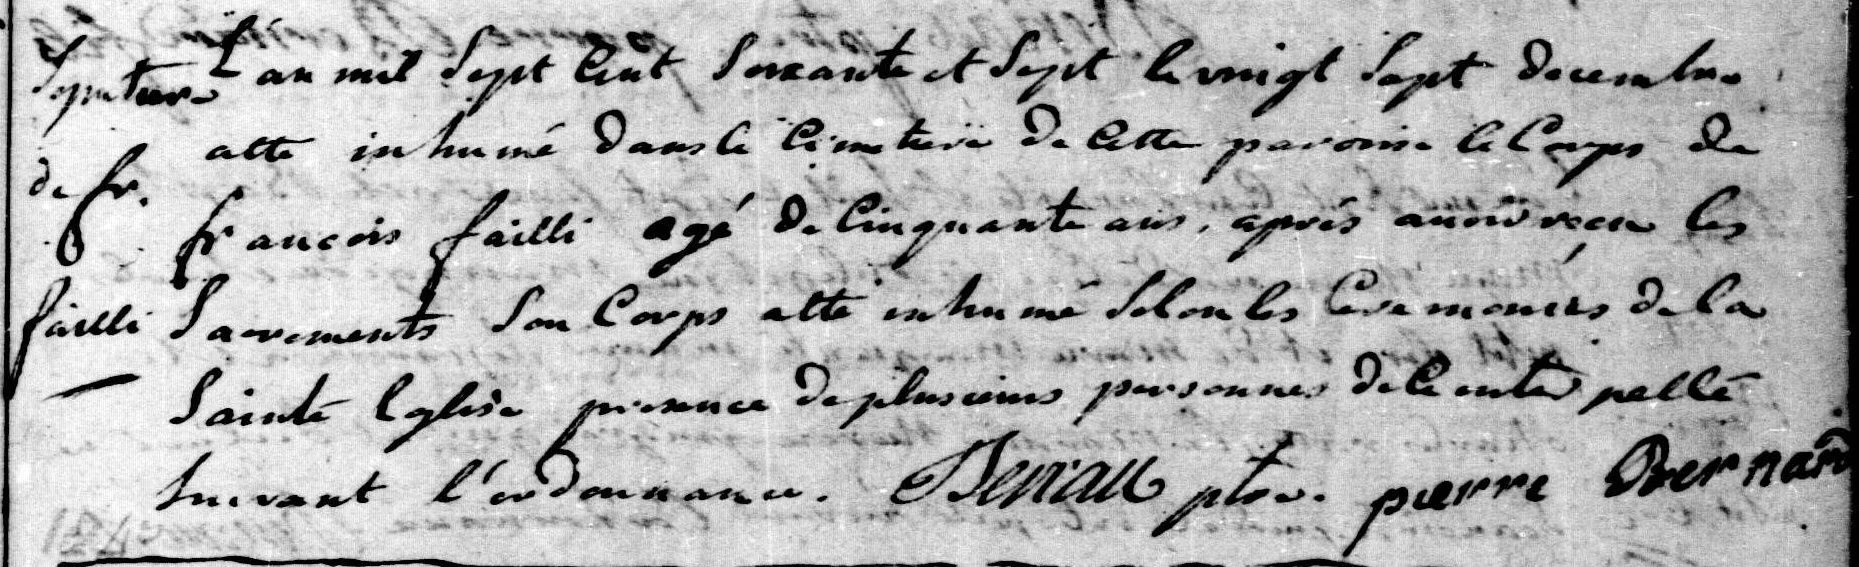 Sepulture
de fr.
failli
L'an mil Sept Cent Soixante et Sept le vingt Sept decembre
atté inhumé dans le Cimetiere de Cette paroisse le Corps de
francois failli agé de Cinquante ans, aprés avoir recu les
Sacrements Son Corps atté inhumé Selon les Ceremoniés de la
Sainte Eglise presence de plusieurs personnes de
Suivant l'ordonnance. ptre. pierre Bernard